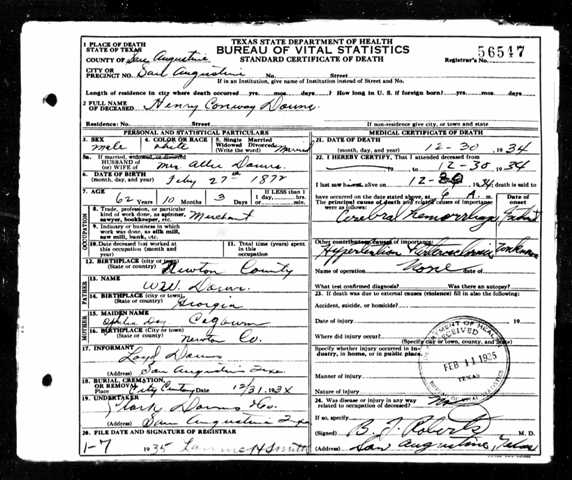 TEXAS STATE DEPARTMENT OF HEALTH
BUREAU OF VITAL STATISTICS
STANDARD CERTIFICATE OF DEATH
56547
Registrar's No.
1 PLACE OF DEATH
STATE OF TEXAS
COUNTY OF San Augustine
CITY OR
PRECINCT NO. San Augustine No. Street
If in an Institution, give name of Institution instead of Street and No.
Length of residence in city where death occurred yrs. mos. days. How long in U. S. if foreign born? yrs. mos. days
2 FULL NAME
OF DECEASED Henry Conway Downs
Residence: No. Street
If non-residence give city, or town and state
PERSONAL AND STATISTICAL PARTICULARS
3. SEX
male
4. COLOR OR RACE
white
5. Single Married
Widowed Divorced
(Write the word) Married
5a. If married, widowed, or divorced
HUSBAND OF
or WIFE OF Mrs Allie Downs
6. DATE OF BIRTH
(month, day, and year) Feby 27th 1872
7. AGE
62 Years 10 Months 3 Days
IF LESS than 1
day, hrs.
or min.
OCCUPATION
8. Trade, profession, or particular
kind of work done, as spinner,
sawyer, bookkeeper, etc. Merchant
9. Industry or business in
which work was done, as silk mill,
saw mill, bank, etc.
10. Date deceased last worked at
this occupation (month and
year)
11. Total time (years) spent in
this occupation
12. BIRTHPLACE (City or town)
(State or county) Newton County
FATHER
13. NAME
W.W. Downs
14. BIRTHPLACE (City or town)
(State or country) Georgia
MOTHER
15. MAIDEN NAME
16. BIRTHPLACE (City or town)
(State or country) Newton Co.
17. INFORMANT
Loyd Downs
(Address) San Augustine Texas
18. BURIAL, CREMATION,
OR REMOVAL
Place City Cemtery Date 12/31 1934
19. UNDERTAKER
Downs
(Address) San Augustine Texas
20. FILE DATE AND SIGNATURE OF REGISTRAR
1-7 1935
MEDICAL CERTIFICATE OF DEATH
21. DATE OF DEATH
(month, day, and year) 12-30 1934
22. I HEREBY CERTIFY, That I attended deceased from
12-30 1934
I last saw alive on 12-30 1934 death is said to
have occurred on the date stated above, at M.
The principal cause of death and related causes of importance
were as follows:
Date of
Onset
Cerebral Hemorrhage
Other contributory causes of importance:
Hypertention Arterosclerosis Unknown
Name of operation None Date of
What test confirmed diagnosis? Was there an autopsy.
23. If death was due to external causes (violence) fill in also the following:
Accident, suicide, or homicide?
Date of injury 19
Where did injury occur?
(Specify city or town, county, and state)
Specify whether injury occurred in industry, in home, or in public place.
Manner of injury
Nature of injury
24. Was disease or injury in any way
related to occupation of deceased? No
If so, specify
(Signed) B. F. Roberts M. D.
(Address) San Augustine, Texas
DEPARTMENT OF HEALTH
FEB 11 1935
TEXAS